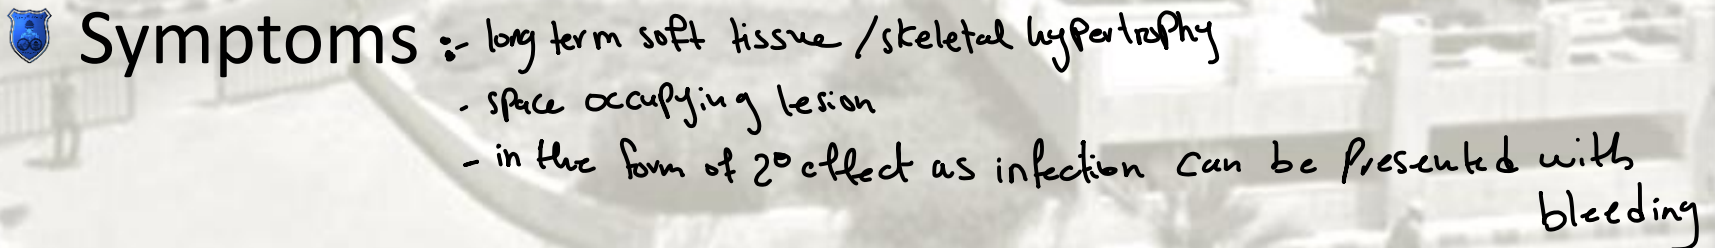 Symptoms :- long term soft tissue / skeletal hypertrophy
- space occupying lesion
- in the form of 2° effect as infection can be Presented with
bleeding